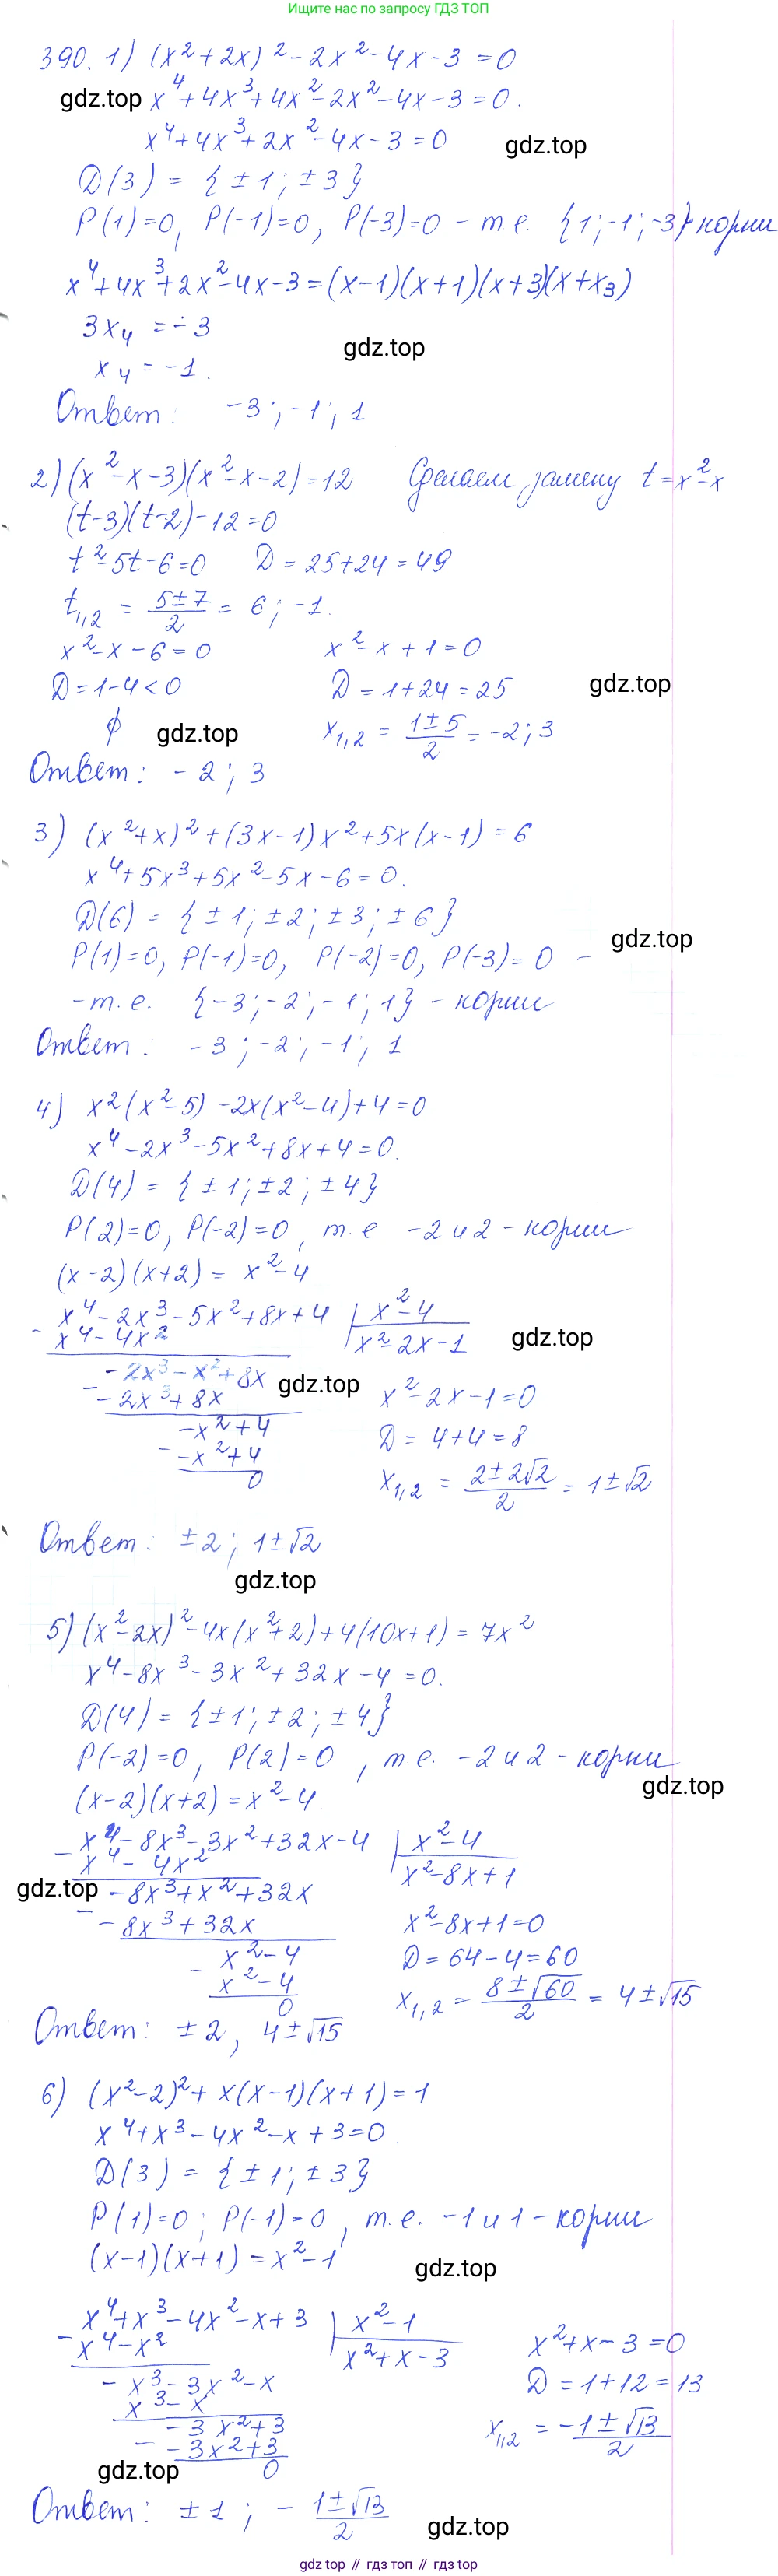 Ищите нас по запросу ГДЗ ТОП
390. 1) (x² + 2x)² - 2x² - 4x - 3 = 0
gdz.top x⁴ + 4x³ + 4x² - 2x² - 4x - 3 = 0.
x⁴ + 4x³ + 2x² - 4x - 3 = 0
gdz.top
D(3) = {±1; ±3}
P(1)=0, P(-1)=0, P(-3)=0 - т.е. {1; -1; -3} - корни
x⁴ + 4x³ + 2x² - 4x - 3 = (x-1)(x+1)(x+3)(x+x₃)
3x₄ = -3
gdz.top
x₄ = -1.
Ответ: -3; -1; 1
2) (x² - x - 3)(x² - x - 2) = 12 Сделаем замену t = x² - x
(t-3)(t-2) - 12 = 0
t² - 5t - 6 = 0 D = 25 + 24 = 49
t₁,₂ = (5±7)/2 = 6; -1.
x² - x - 6 = 0 x² - x + 1 = 0
D = 1 - 4 < 0 D = 1 + 24 = 25 gdz.top
∅ gdz.top x₁,₂ = (1±5)/2 = -2; 3
Ответ: -2; 3
3) (x² + x)² + (3x-1)x² + 5x(x-1) = 6
x⁴ + 5x³ + 5x² - 5x - 6 = 0.
D(6) = {±1; ±2; ±3; ±6}
gdz.top
P(1)=0, P(-1)=0, P(-2)=0, P(-3)=0 -
- т.е. {-3; -2; -1; 1} - корни
Ответ: -3; -2; -1; 1
4) x²(x² - 5) - 2x(x² - 4) + 4 = 0
x⁴ - 2x³ - 5x² + 8x + 4 = 0.
D(4) = {±1; ±2; ±4}
P(2)=0, P(-2)=0, т.е -2 и 2 - корни
(x-2)(x+2) = x² - 4
x⁴ - 2x³ - 5x² + 8x + 4 | x² - 4
- x⁴ - 4x² x² - 2x - 1 gdz.top
- 2x³ - x² + 8x gdz.top
- - 2x³ + 8x x² - 2x - 1 = 0
- x² + 4 D = 4 + 4 = 8
- - x² + 4
0 x₁,₂ = (2±2√2)/2 = 1±√2
Ответ: ±2; 1±√2
gdz.top
5) (x² - 2x)² - 4x(x² + 2) + 4(10x + 1) = 7x²
x⁴ - 8x³ - 3x² + 32x - 4 = 0.
D(4) = {±1; ±2; ±4}
P(-2)=0, P(2)=0, т.е. -2 и 2 - корни
gdz.top
(x-2)(x+2) = x² - 4
x⁴ - 8x³ - 3x² + 32x - 4 | x² - 4
- x⁴ - 4x² x² - 8x + 1
gdz.top - 8x³ + x² + 32x
- - 8x³ + 32x x² - 8x + 1 = 0
x² - 4 D = 64 - 4 = 60
- x² - 4
0 x₁,₂ = (8±√60)/2 = 4±√15
Ответ: ±2, 4±√15
6) (x² - 2)² + x(x-1)(x+1) = 1
x⁴ + x³ - 4x² - x + 3 = 0.
D(3) = {±1; ±3}
P(1)=0; P(-1)=0, т.е. -1 и 1 - корни
(x-1)(x+1) = x² - 1
gdz.top
x⁴ + x³ - 4x² - x + 3 | x² - 1
- x⁴ - x² x² + x - 3 x² + x - 3 = 0
- x³ - 3x² - x D = 1 + 12 = 13
x³ - x
- 3x² + 3 x₁,₂ = (-1±√13)/2
- - 3x² + 3
gdz.top 0
Ответ: ±1; - (1±√13)/2
gdz.top
gdz.top // гдз топ // gdz.top